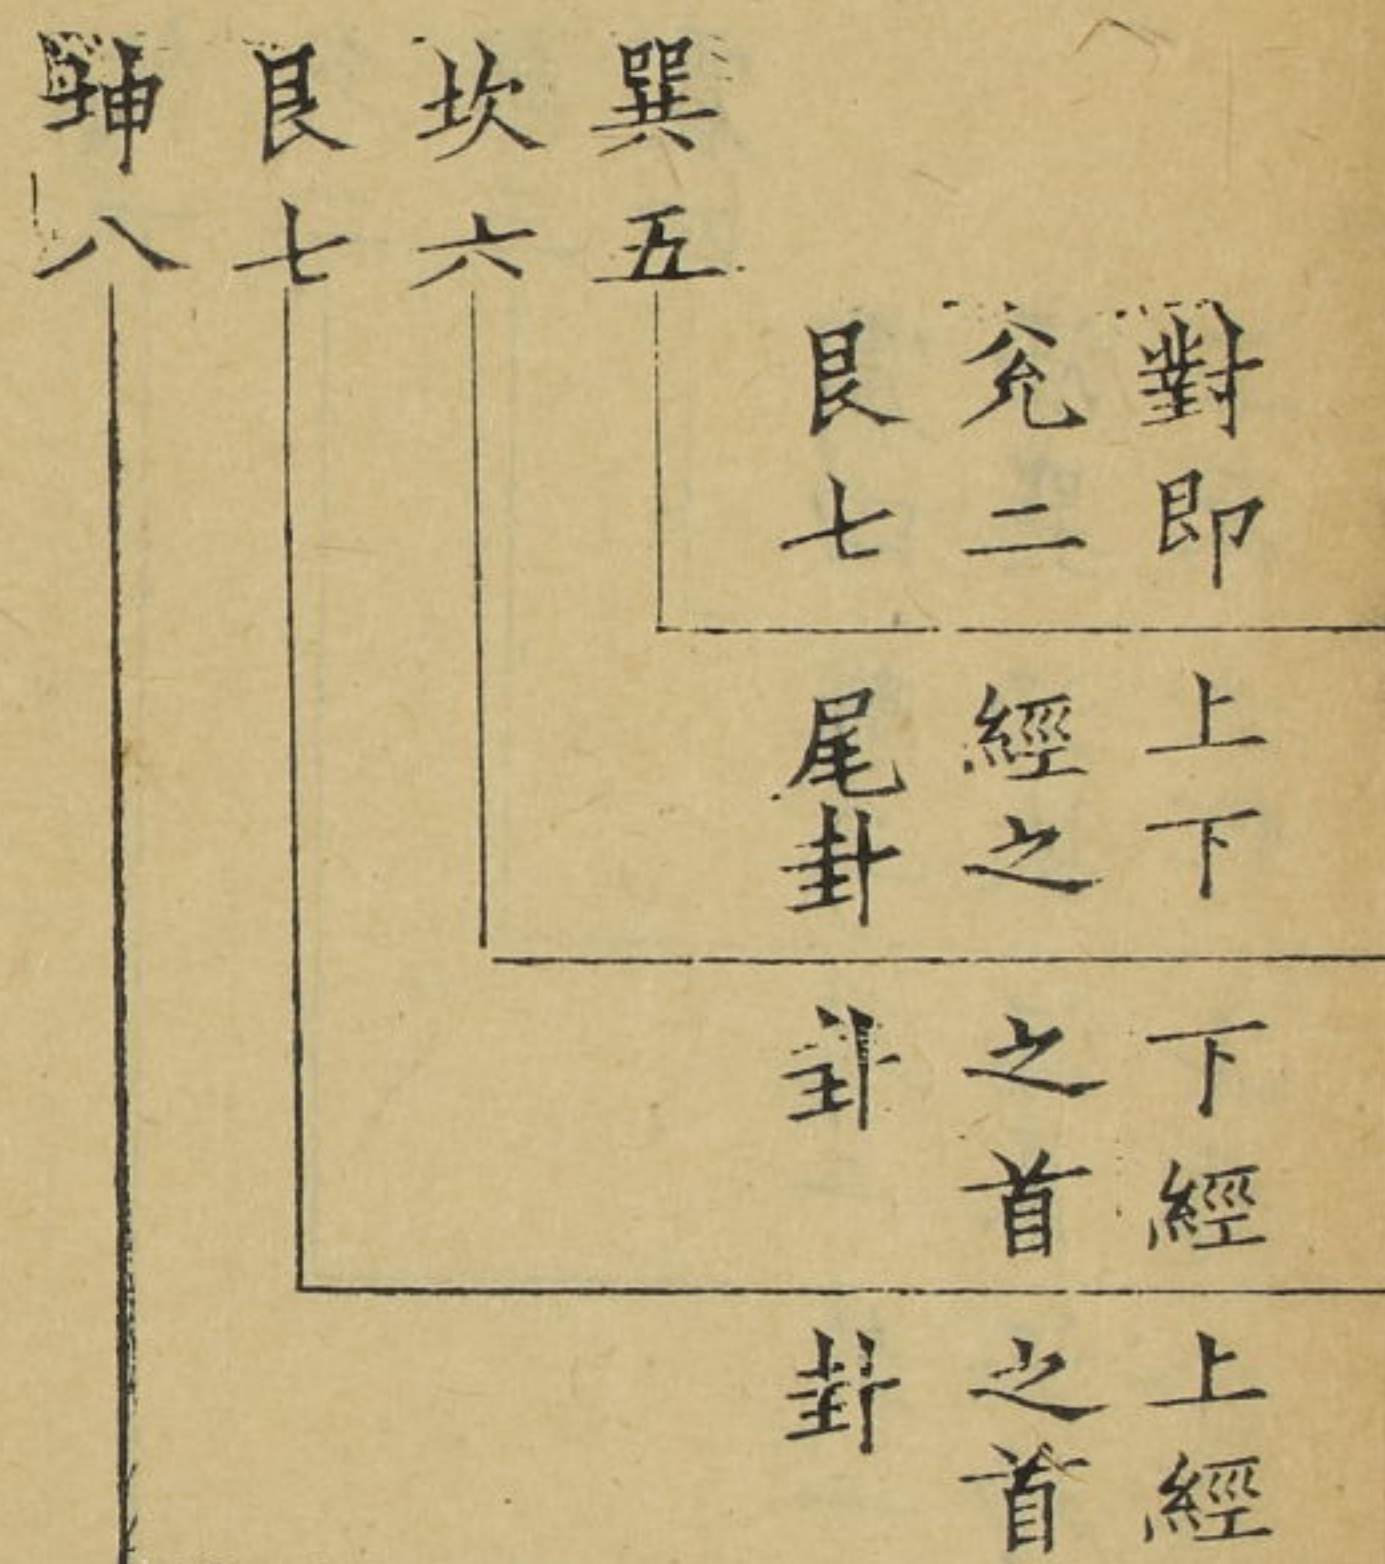 巽五
坎六
艮七
坤八
對即
兌二
艮七
上下
經之
尾卦
下經
之首
卦
上經
之首
卦